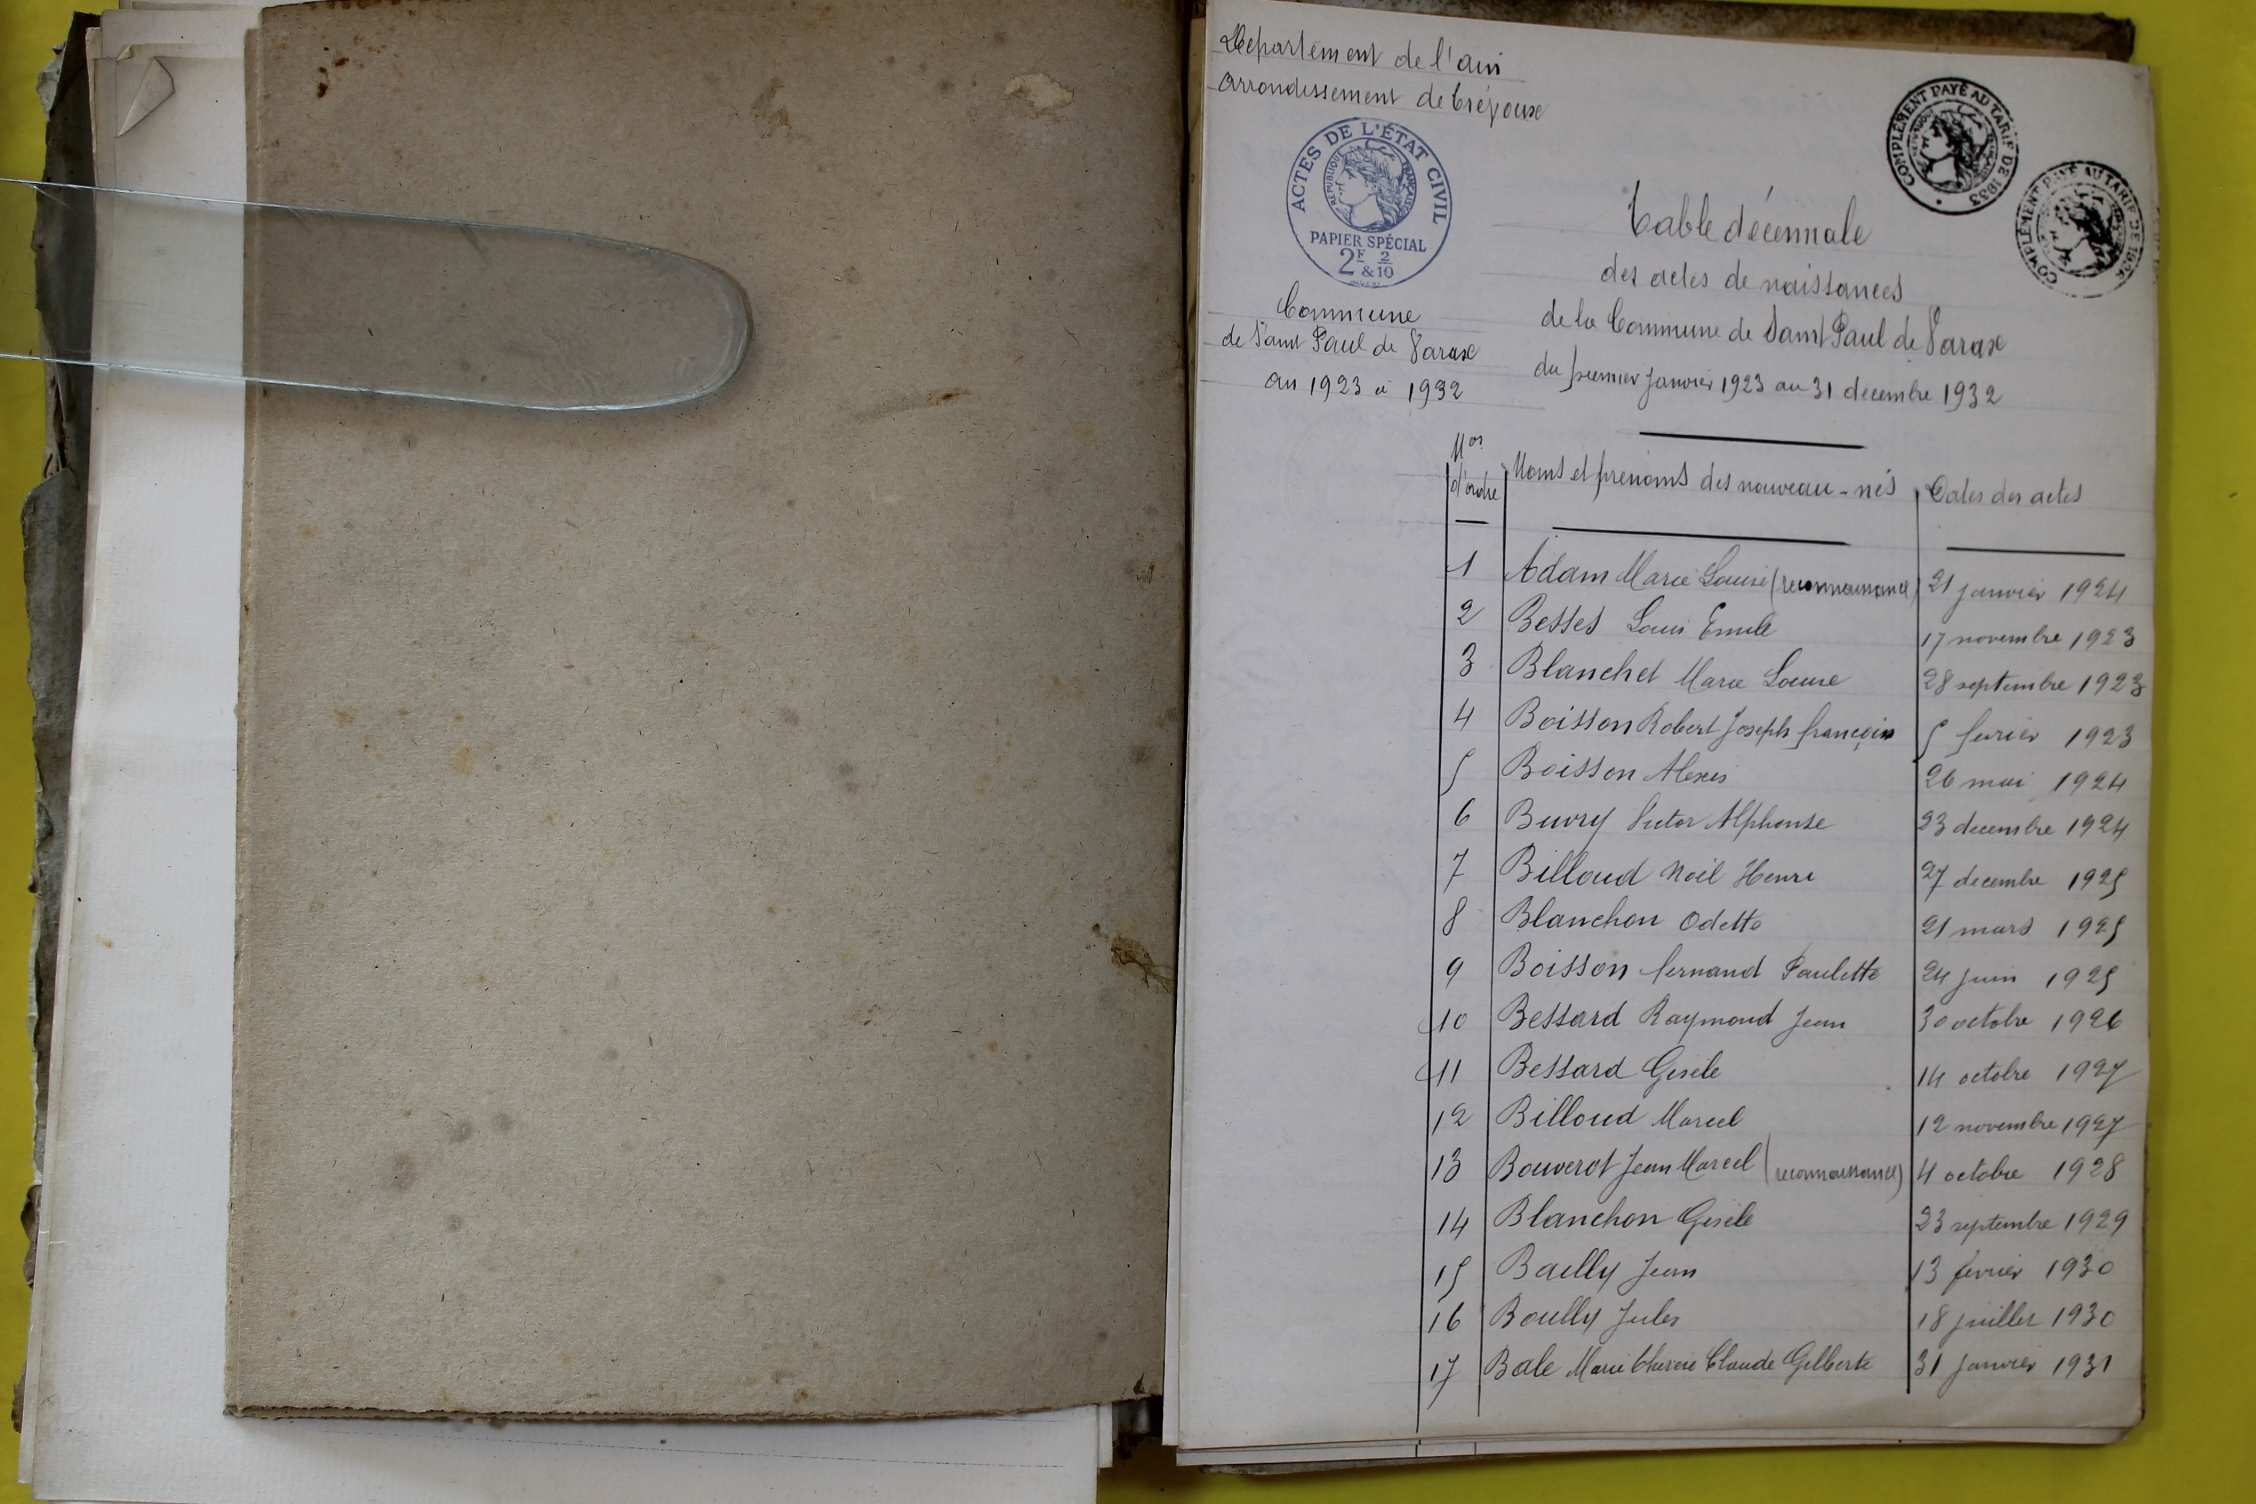 Département de l'ain
arrondissement de Trévoux
ACTES DE L'ÉTAT CIVIL
RÉPUBLIQUE FRANÇAISE
PAPIER SPÉCIAL
2F & 2/10
COMPLÉMENT PAYÉ AU TARIF DE 1933
COMPLÉMENT PAYÉ AU TARIF DE
Commune
de Saint Paul de Varax
an 1923 à 1932
Table décennale
des actes de naissances
de la Commune de Saint Paul de Varax
du premier janvier 1923 au 31 decembre 1932
Nos d'ordre Noms et prénoms des nouveau-nés Dates des actes
1 Adam Marie Louise (reconnaissance) 21 janvier 1924
2 Besses Louis Emile 17 novembre 1923
3 Blanchet Marie Louise 28 septembre 1923
4 Boisson Robert Joseph françois 5 fevrier 1923
5 Boisson Alexis 26 mai 1924
6 Buvry Victor Alphonse 23 decembre 1924
7 Billoud Noël Henri 27 decembre 1925
8 Blanchon Odette 21 mars 1925
9 Boisson fernand Paulette 24 juin 1925
10 Bessard Raymond Jean 30 octobre 1926
11 Bessard Gisèle 14 octobre 1927
12 Billoud Marcel 12 novembre 1927
13 Bouverot Jean Marcel (reconnaissance) 4 octobre 1928
14 Blanchon Gisèle 23 septembre 1929
15 Bailly Jean 13 fevrier 1930
16 Boully Jules 18 juillet 1930
17 Bale Marie Therese Claude Gilberte 31 janvier 1931